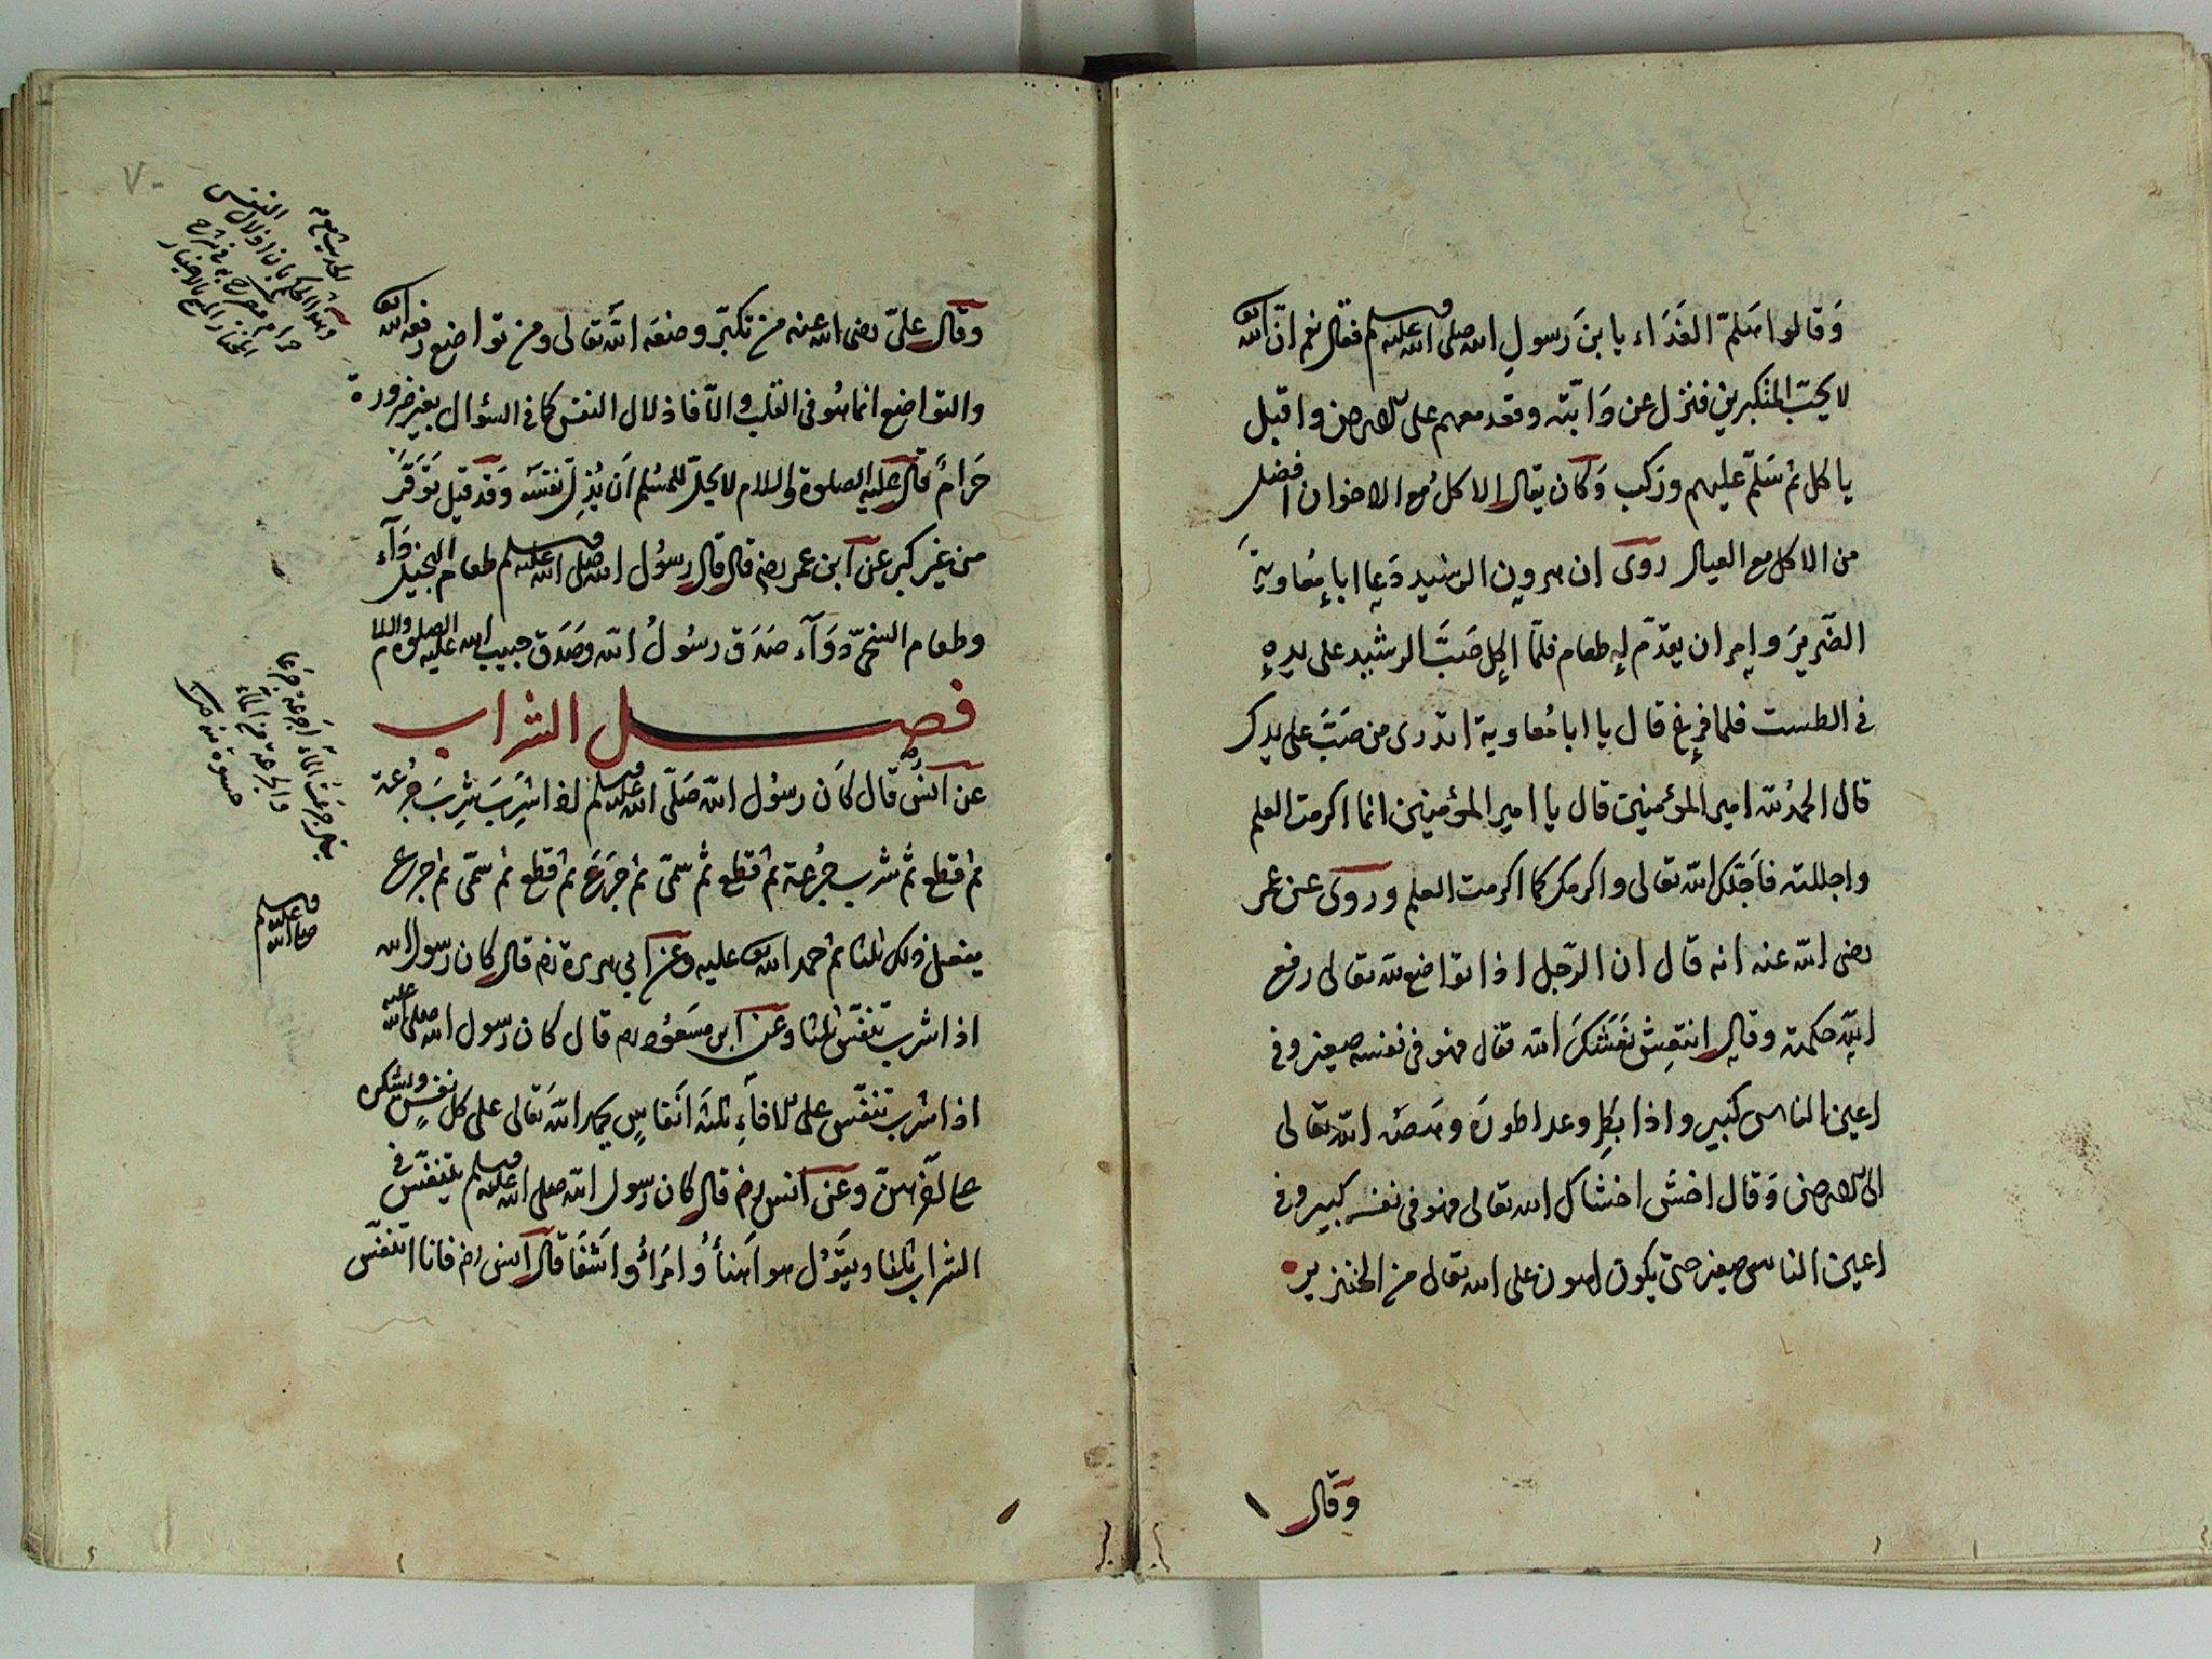 وَقالوا هَلمّ الغَدَاء يا بنَ رَسولِ الله صلى الله عليه وسلم فقال نعم انّ الله تع
لا يحبّ المتكبرين فنزل عن دَابّته وقعد معهم على الارض واقبل
ياكل ثم سَلّم عليهم وركب وَكان يقال الاكلُ مع الاخوان افضل
من الاكل مع العيال روى ان هرون الرشيد دَعا ابا مُعاويةَ
الضّريرَ وامر ان يقدّم له طعام فلمّا اكل صَبَّ الرشيد على يده
فى الطست فلما فرغ قال يا ابا مُعاوية اتدرى من صَبَّ على يدك
قال الحمدُ لله امير المؤمنين قال يا امير المؤمنين انما اكرمت العلم
واجللته فاَجَلّك الله تعالى واكرمك كما اكرمت العلم وروى عن عمر
رضى الله عنه انه قال ان الرّجل اذا تواضع لله تعالى رفع
الله حكمته وقال انتعِش نَعَشَكَ الله تعالى فهو فى نفسه صغير وفى
اعين الناس كبير واذا تكبر وعدا طورَه وهَصَه الله تعالى
الى الارض وَقال اخسَ اخساك الله تعالى فهو فى نفسه كبير وفى
اعين الناس صغير حتى يكون اهون على الله تعالى من الخنزير
وَقال
٧٠
وقال علىّ رضى الله عنه من تكبّر وضعَه الله تعالى ومن تواضع رفعه الله تع
والتواضع انما هُو فى القلب والاّ فاذلال النفس كما فى السؤال بغير ضرورة
حَرامٌ قال عليه الصلوة والسلام لا يحلّ للمُسلم اَن يُذِلّ نفسَه وَقد قيل تَوَقَّرَ
من غير كبر عن ابن عمر رضه قال قال رسُول الله صلى الله عليه وسلم طعام البخيل دَآء
وطعام السّخىّ دَوَآء صَدَق رسُولُ الله وصَدَق حبيب الله عليه الصلوة والسلام
فصل الشراب
عن انس رض قال كَان رسُول الله صَلّى الله عليه وسلم اذا شَرِبَ شَرِبَ جُرعة
ثم قطع ثم شرب جُرعة ثم قطع ثم سمّى ثم جَرَعَ ثم قطع ثم سمّى ثم جرع
يفعل ذلك ثلثا ثم حمد الله تع عليه وعَن ابي هريرة رض قال كان رسول الله
صلى الله عليه وسلم
اذا شرب تنفّس ثلثا وعن ابن مسعُود رض قال كان رسول الله صلى الله عليه
اذا شرب تنفّس على الاناءِ ثلثَة انفاسٍ يحمد الله تعالى على كل نفَسٍ ويشكره
على آخرهنّ وعَن انس رض قال كان رسول الله صلى الله عليه وسلم يتنفّس فى
الشراب ثلثا ويَقُول هو اَهنأُ وَامرَأُ وَاشفَا قال انس رض فانا اتنفّس